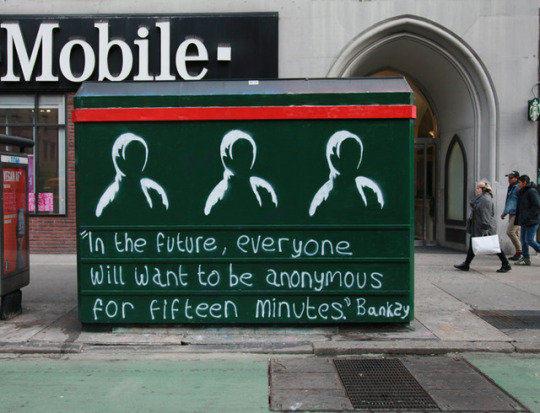 Mobile
VEGAN
"In the future, everyone
will want to be anonymous
for fifteen minutes." Banksy